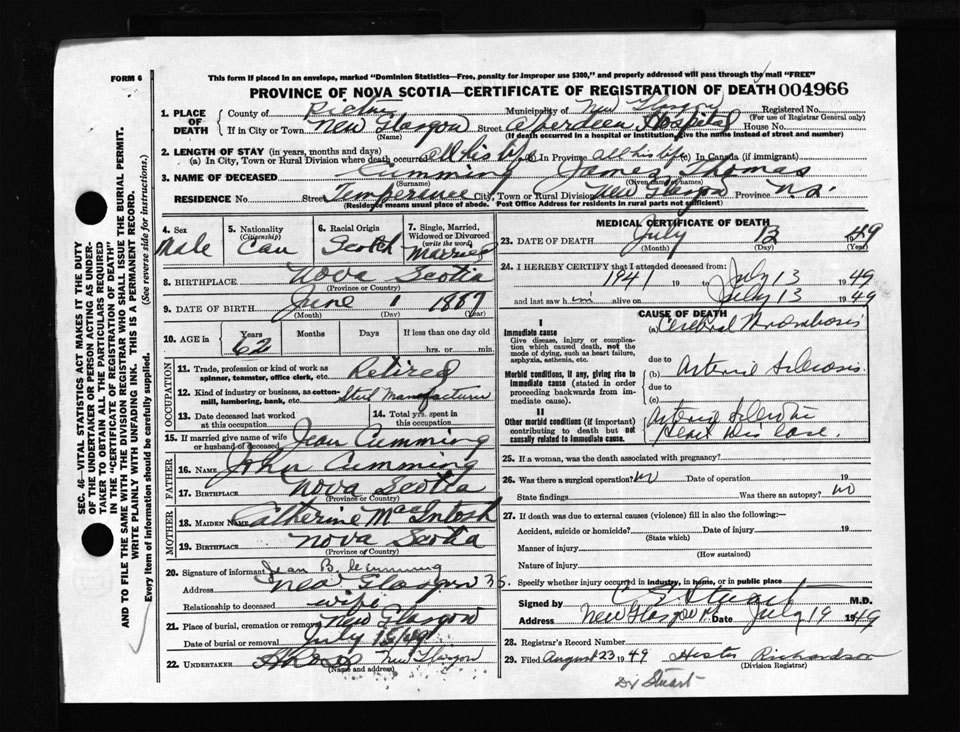 FORM 6
This form if placed in an envelope, marked "Dominion Statistics—Free, penalty for improper use $300," and properly addressed will pass through the mail "FREE"
PROVINCE OF NOVA SCOTIA—CERTIFICATE OF REGISTRATION OF DEATH 004966
1. PLACE OF DEATH
County of Pictou Municipality of New Glasgow Registered No.
(For use of Registrar General only)
If in City or Town New Glasgow Street Aberdeen Hospital House No.
(Name) (If death occurred in a hospital or institution, give the name instead of street and number)
2. LENGTH OF STAY (in years, months and days)
(a) In City, Town or Rural Division where death occurred all his life (b) In Province All his life (c) In Canada (if immigrant)
3. NAME OF DECEASED Cumming James Thomas
(Surname) (Given names)
RESIDENCE No. Street Temperance City, Town or Rural Division New Glasgow Province N.S.
(Residence means usual place of abode. Post Office Address for residents in rural parts not sufficient)
4. Sex Male
5. Nationality (Citizenship) Can
6. Racial Origin Scotch
7. Single, Married, Widowed or Divorced (write the word) Married
8. BIRTHPLACE Nova Scotia
(Province or Country)
9. DATE OF BIRTH June 1 1887
(Month) (Day) (Year)
10. AGE in Years Months Days If less than one day
62 hrs. or min.
OCCUPATION
11. Trade, profession or kind of work as spinner, teamster, office clerk, etc. Retired
12. Kind of industry or business, as cotton-mill, lumbering, bank, etc. Steel Manufacturer
13. Date deceased last worked at this occupation
14. Total yrs. spent in this occupation
15. If married give name of wife or husband of deceased Jean Cumming
FATHER
16. NAME John Cumming
17. BIRTHPLACE Nova Scotia
(Province or Country)
MOTHER
18. MAIDEN NAME Catherine MacIntosh
19. BIRTHPLACE Nova Scotia
(Province or Country)
20. Signature of informant Jean B. Cumming
Address New Glasgow N.S.
Relationship to deceased wife
21. Place of burial, cremation or removal New Glasgow
Date of burial or removal July 16/49
22. UNDERTAKER New Glasgow
(Name and address)
MEDICAL CERTIFICATE OF DEATH
23. DATE OF DEATH July 13 1949
(Month) (Day) (Year)
24. I HEREBY CERTIFY that I attended deceased from
1941 19 to July 13 1949
and last saw him alive on July 13 1949
CAUSE OF DEATH
I
Immediate cause (a) Cerebral Thrombosis
Give disease, injury or complication which caused death, not the mode of dying, such as heart failure, asphyxia, asthenia, etc.
due to
Morbid conditions, if any, giving rise to immediate cause (stated in order proceeding backwards from immediate cause).
(b) Arterio Sclerosis
due to
(c)
II
Other morbid conditions (if important) contributing to death but not causally related to immediate cause.
Arterio Sclerotic
Heart Disease.
25. If a woman, was the death associated with pregnancy?
26. Was there a surgical operation? No Date of operation 19
State findings Was there an autopsy? No
27. If death was due to external causes (violence) fill in also the following:—
Accident, suicide or homicide? Date of injury 19
(State which)
Manner of injury
(How sustained)
Nature of injury
Specify whether injury occurred in industry, in home, or in public place
Signed by M.D.
Address New Glasgow Date July 19 1949
28. Registrar's Record Number
29. Filed August 23 1949 Hester Richardson
(Division Registrar)
Dr Stuart
SEC. 46—VITAL STATISTICS ACT MAKES IT THE DUTY
OF THE UNDERTAKER OR PERSON ACTING AS UNDERTAKER TO OBTAIN ALL THE PARTICULARS REQUIRED
IN THE "CERTIFICATE OF REGISTRATION OF DEATH"
AND TO FILE THE SAME WITH THE DIVISION REGISTRAR WHO SHALL ISSUE THE BURIAL PERMIT.
WRITE PLAINLY WITH UNFADING INK. THIS IS A PERMANENT RECORD.
Every item of information should be carefully supplied. (See reverse side for instructions).